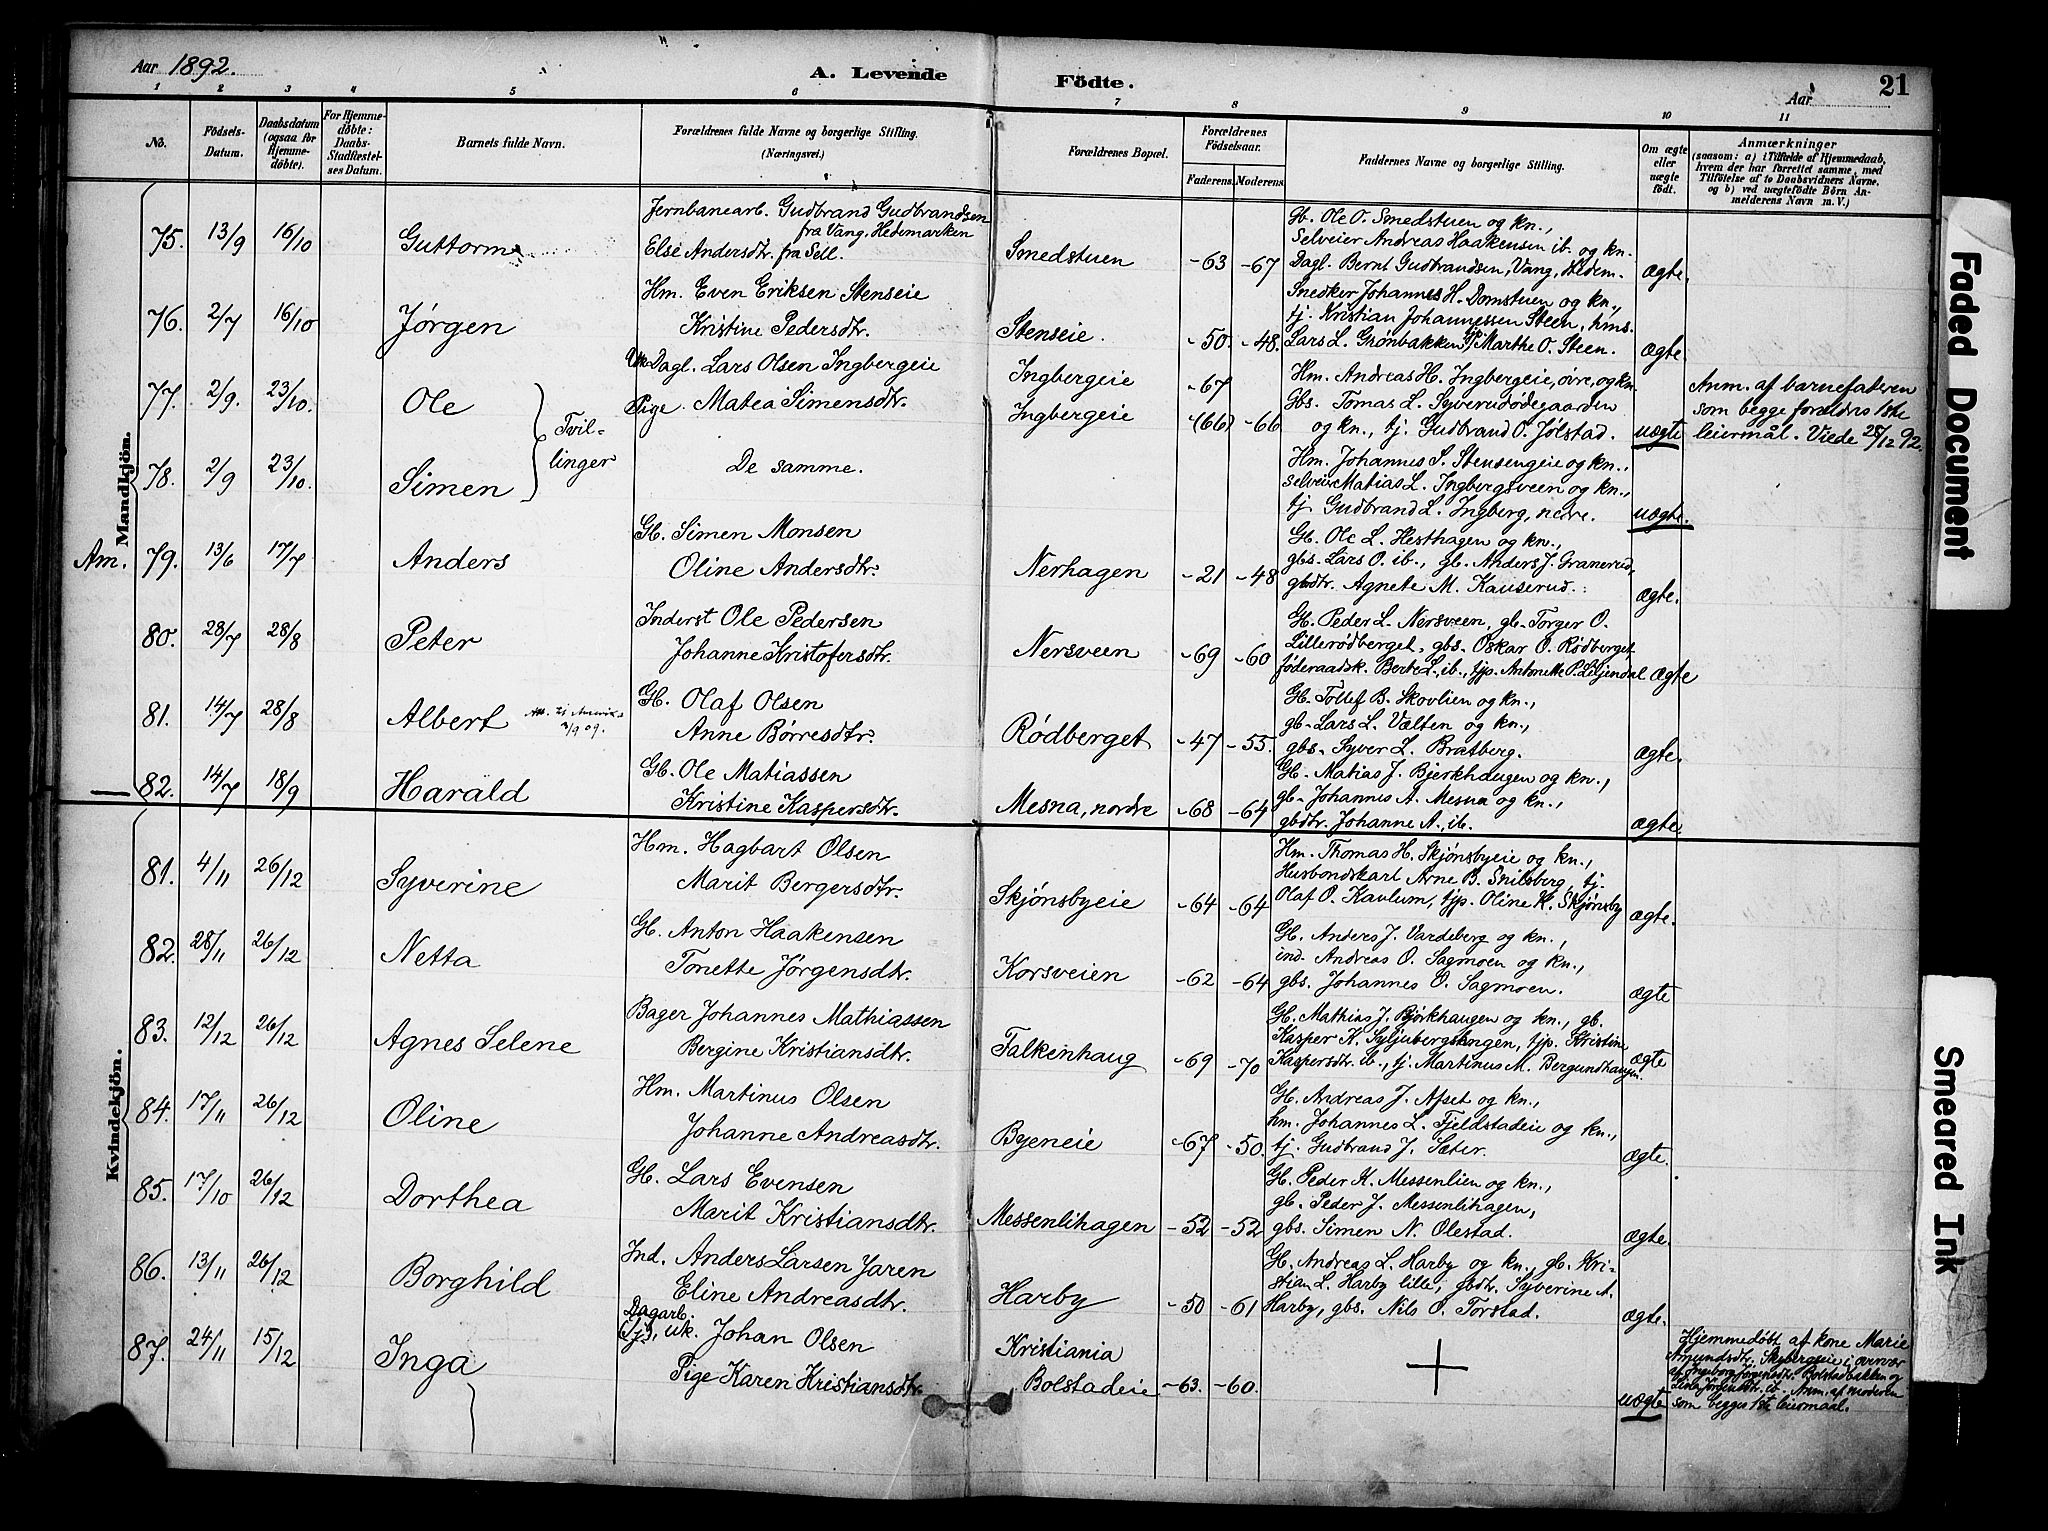 Aar 1892.
A. Levende Fødte.
Aar
21
1 2 3 4 5 6 7 8 9 10 11
No.
Fødsels-Datum.
Daabsdatum (ogsaa for Hjemmedøbte).
For Hjemmedøbte: Daabs-Stadfæstelses Datum.
Barnets fulde Navn.
Forældrenes fulde Navne og borgerlige Stilling.
(Næringsvei.)
Forældrenes Bopæl.
Forældrenes Fødselsaar.
Faderens. Moderens.
Faddernes Navne og borgerlige Stilling.
Om ægte eller uægte født.
Anmærkninger
(saasom: a) i Tilfælde af Hjemmedaab, hvem der har forrettet samme, med Tilføielse af to Daabsvidners Navne, og b) ved uægtefødte Børn Anmelderens Navn m. V.)
Mandkjön.
75. 13/9 16/10 Guttorm
Jernbanearb. Gudbrand Gudbrandsen
fra Vang, Hedemarken
Else Andersdtr. fra Sell.
Smedstuen -63 -67
Gb. Ole O. Smedstuen og kn.,
Selveier Andreas Haakensen ib. og kn.
Dagl. Bernt Gudbrandsen, Vang, Hedem.
ægte.
76. 2/7 16/10 Jørgen
Hm. Even Eriksen Stenseie
Kristine Pedersdtr.
Stenseie. -50. -48.
Snedker Johannes H. Domstuen og kn.,
tj. Kristian Johannessen Steen, hms.
Lars L. Grønbakken, Marthe O. Steen.
ægte.
77. 2/9. 23/10. Ole
Tvillinger
Uk. Dagl. Lars Olsen Ingbergeie
Pige. Matea Simensdtr.
Ingbergeie -67
Ingbergeie (66) -66
Hm. Andreas H. Ingbergeie, øvre, og kn.
Gbs. Tomas L. Syverudødegaarden
og kn., tj. Gudbrand O. Jølstad.
uægte
Anm. af barnefaderen
som begge forældres 1ste
leiermål. Viede 28/12 92.
78. 2/9 23/10. Simen
De samme.
Hm. Johannes S. Stensengeie og kn.,
selveier Matias L. Ingbergsveen og kn.,
tj. Gudbrand L. Ingberg, nedre.
uægte.
Am. 79. 13/6 17/7 Anders
Gb. Simen Monsen
Oline Andersdtr.
Nerhagen -21 -48
Gb. Ole L. Hesthagen og kn.,
gbs. Lars O. ib., gb. Anders J. Granerud,
gbdtr. Agnete M. Kauserud.
ægte.
80. 28/7 28/8 Peter
Inderst Ole Pedersen
Johanne Kristofersdtr.
Nersveen -69 -60
Gb. Peder L. Nersveen, gb. Torger O.
Lillerødberget, gbs. Oskar O. Rødberget
føderaadsk. Berte L. ib., tjp. Antonette P. Liljendal
ægte
81. 14/7 28/8 Albert
Olaf Olsen
Anne Børresdtr.
Rødberget -47 -55.
Gb. Tollef B. Skovlien og kn.,
gb. Lars L. Vælten og kn.,
gbs. Syver L. Bratberg.
ægte.
82. 14/7 18/9 Harald
Gb. Ole Matiassen
Kristine Kaspersdtr.
Mesna, nordre -68 -64
Gb. Matias J. Bjerkhaugen og kn.,
gb. Johannes A. Mesna og kn.,
gbdtr. Johanne A., ib.
ægte.
Kvindekjön.
81. 4/11 26/12 Syverine
Hm. Hagbart Olsen
Marit Bergersdtr.
Skjønsbyeie -64 -64
Hm. Thomas H. Skjønsbyeie og kn.,
Husbondskarl Arne B. Snilsberg, tj.
Olaf O. Kaulum, tjp. Oline K. Skjønsby
ægte.
82. 28/11 26/12 Netta
Gb. Anton Haakensen
Tonette Jørgensdtr.
Korsveien -62 -64
Gb. Anders J. Vardeberg og kn.,
ind. Andreas O. Sagmoen og kn.,
gbs. Johannes O. Sagmoen.
ægte
83. 12/12 26/12 Agnes Selene
Bager Johannes Mathiassen
Bergine Kristiansdtr.
Falkenhaug -69 -70
Gb. Mathias J. Bjørkhaugen og kn., gb.
Kasper K. Syljubergsengen, tjp. Kristine
Kaspersdtr. ib., tj. Martinus M. Bergundhaugen.
ægte
84. 17/11 26/12 Oline
Hm. Martinus Olsen
Johanne Andreasdtr.
Byeneie -67 -50.
Gb. Andreas J. Afset og kn.,
hm. Johannes L. Fjeldstadeie og kn.,
tj. Gudbrand J. Sæter.
ægte.
85. 17/10 26/12 Dorthea
Gb. Lars Evensen
Marit Kristiansdtr.
Messenlihagen -52 -52
Gb. Peder K. Messenlien og kn.,
gb. Peder J. Messenlihagen,
gbs. Simen N. Olestad.
ægte.
86. 13/11 26/12 Borghild
Ind. Anders Larsen Jaren
Eline Andreasdtr.
Harby -50 -61
Gb. Andreas L. Harby og kn., gb. Kri-
stian L. Harby lille, gbdtr. Syverine A.
Harby, gbs. Nils O. Torstad.
ægte.
87. 24/11 15/12 Inga
Dagarb.
(tj), uk. Johan Olsen
Pige Karen Kristiansdtr.
Kristiania
Bolstadeie -63. -60.
uægte
Hjemmedøbt af kone Marie
Amundsdtr. Skybergseie i overvær
af Ingeborg Bolstadbakken og
ib. Anm. af moderen
som begges 1ste leiermaal.
Faded Document
Smeared Ink